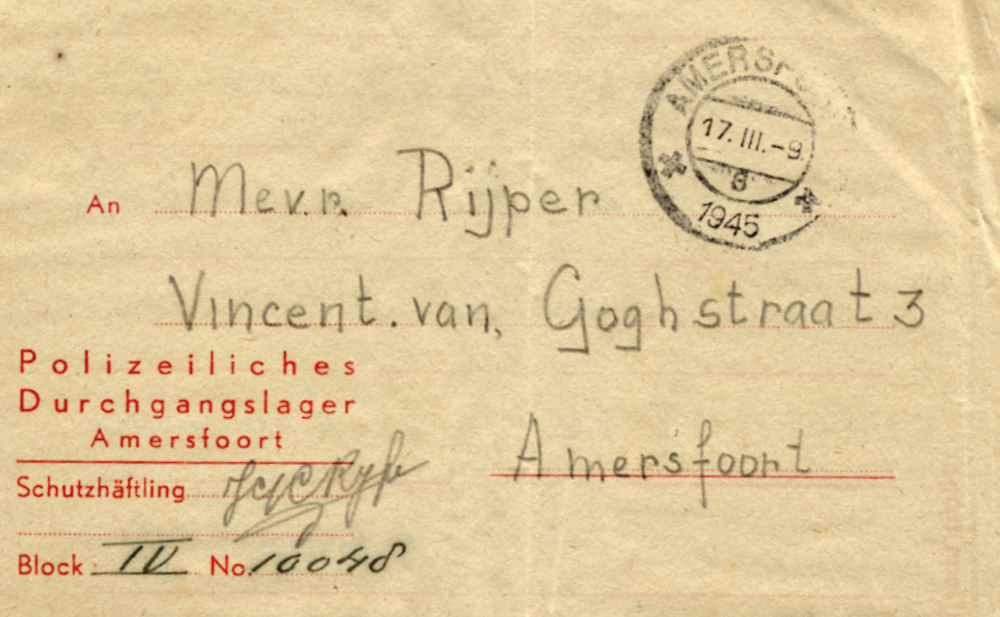 AMERSFOORT
17.III.-9
1945
An Mevr. Rijper
Vincent. van, Goghstraat 3
Polizeiliches
Durchgangslager
Amersfoort
Amersfoort
Schutzhäftling
Block IV No. 10048